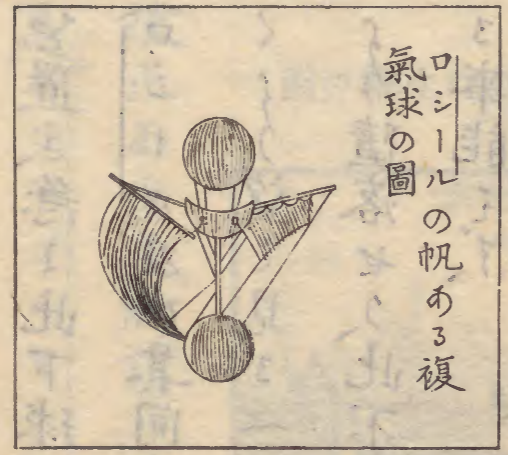 ロシールの帆ある複
氣球の圖